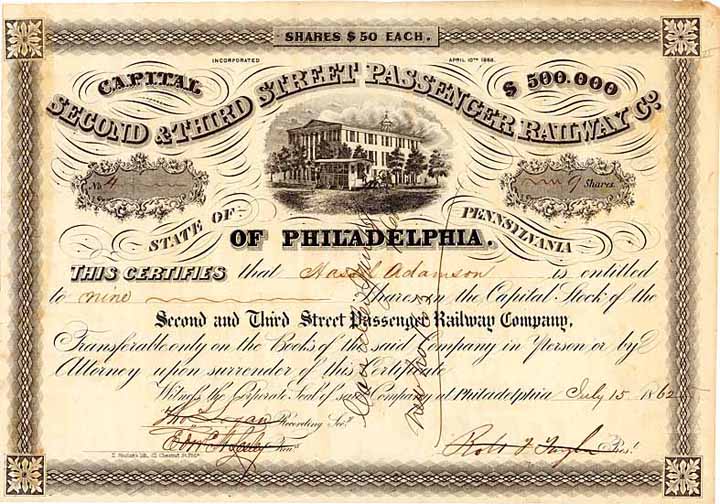 SHARES $50 EACH.
INCORPORATED APRIL 10TH 1858.
CAPITAL $500.000
SECOND & THIRD STREET PASSENGER RAILWAY CO.
No. 4
9 Shares
STATE OF PENNSYLVANIA
OF PHILADELPHIA.
THIS CERTIFIES that Adamson is entitled
to nine Shares in the Capital Stock of the
Second and Third Street Passenger Railway Company,
Transferable only on the Books of the said Company in Person or by
Attorney upon surrender of this Certificate
Witness the Corporate Seal of said Company at Philadelphia July 15 1862
Recording Secy.
Robt F Taylor Prest.
Cancelled